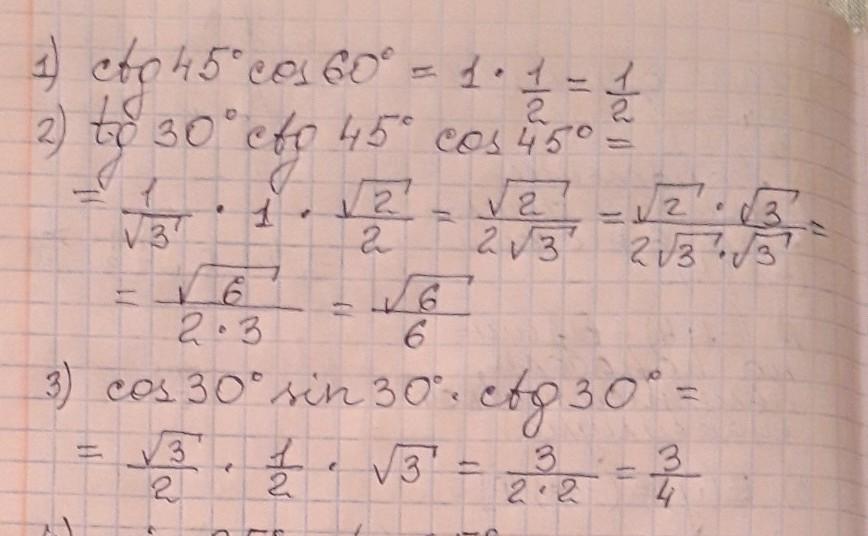 1) ctg 45° cos 60° = 1 · 1/2 = 1/2
2) tg 30° ctg 45° cos 45° =
= 1/√3 · 1 · √2/2 = √2/2√3 = √2 · √3/2√3 · √3 =
= √6/2 · 3 = √6/6
3) cos 30° sin 30° · ctg 30° =
= √3/2 · 1/2 · √3 = 3/2 · 2 = 3/4